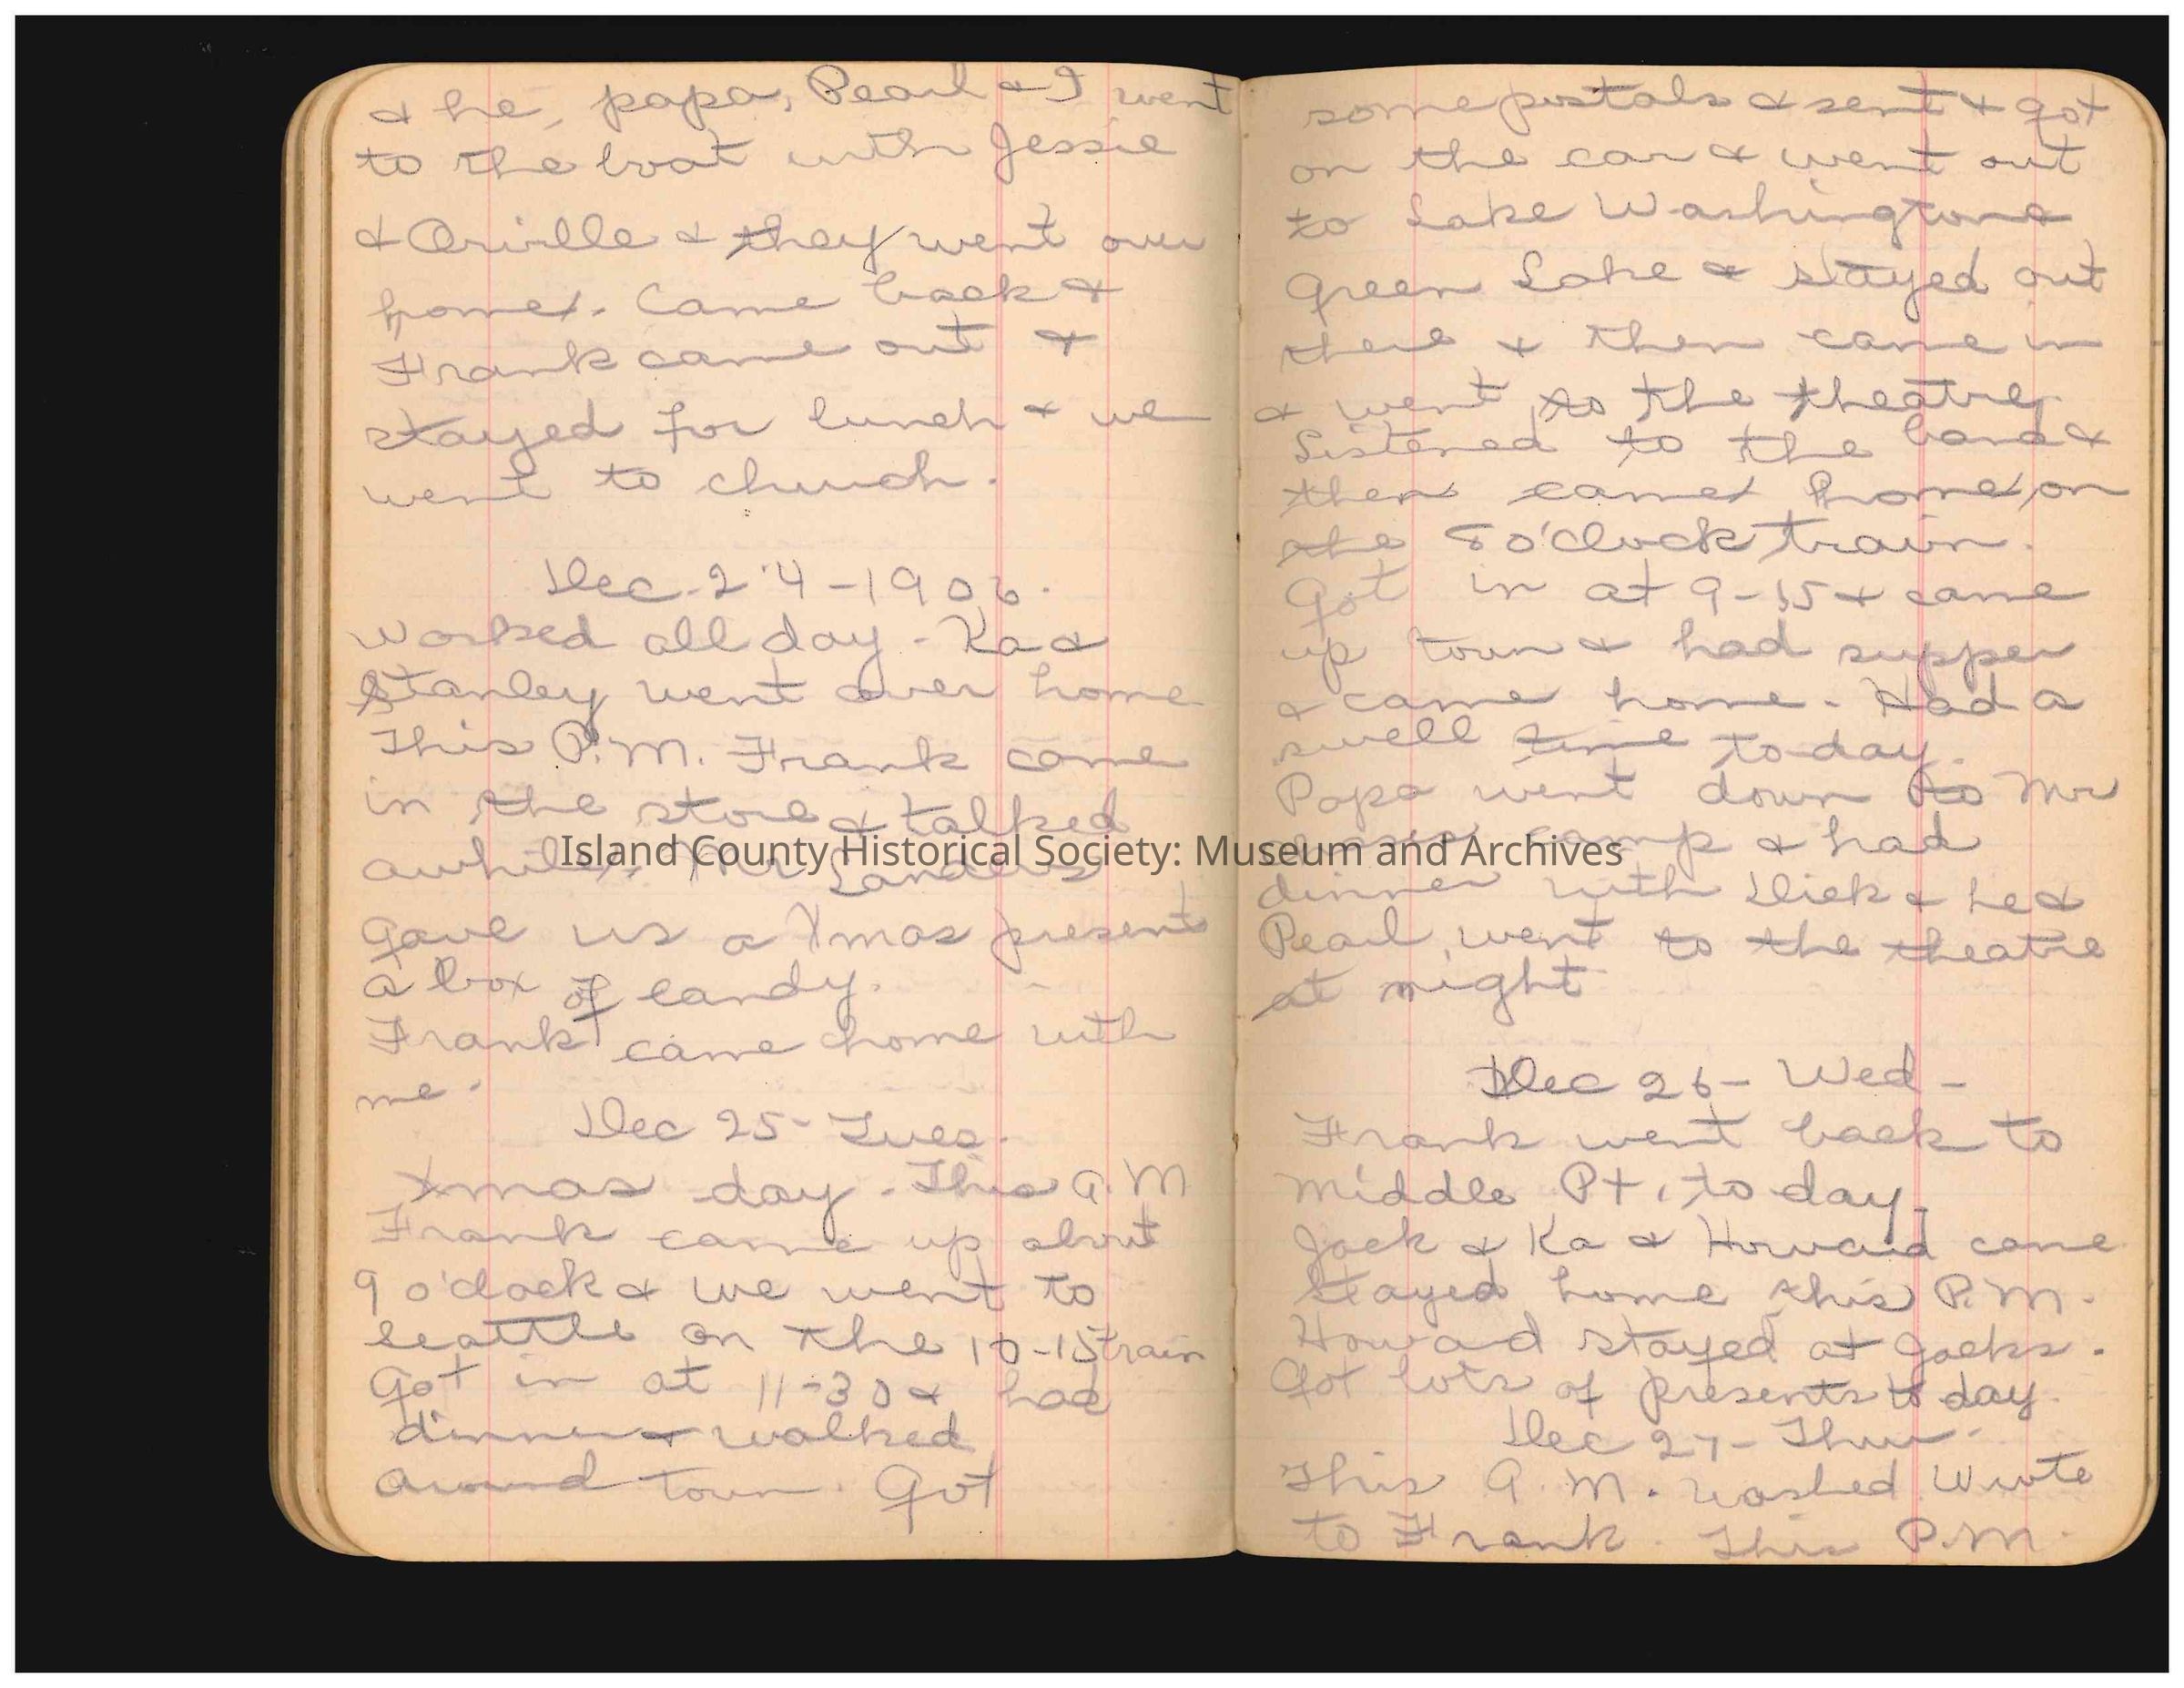 & he, papa, Pearl & I went
to the boat with Jessie
& Orville & they went over
home. Came back &
Frank came out &
stayed for lunch & we
went to church.
Dec. 24 - 1906.
Worked all day. Ka &
Stanley went over home
This P.M. Frank come
in the store & talked
awhile. Mr Landers
gave us a Xmas present
a box of candy.
Frank came home with
me.
Dec 25 - Tues.
Xmas day. This A.M
Frank came up about
9 o'clock & we went to
seattle on the 10-15 train
Got in at 11-30 & had
dinner & walked
around town. Got
some postals & sent & got
on the car & went out
to Lake Washington &
Green Lake & stayed out
there & then came in
& went to the theatre.
Listened to the band &
then came home on
the 8 o'clock train.
Got in at 9-15 & came
up town & had supper
& came home. Had a
swell time to-day.
Papa went down to Mr
camp & had
dinner with Dick & he &
Pearl went to the theatre
at night
Dec 26 - Wed -
Frank went back to
Middle Pt. to day.
Jack & Ka & Howard come
Stayed home this P.M.
Howard stayed at Jacks.
Got lots of presents to day.
Dec 27 - Thur -
This A.M. washed. Wrote
to Frank. This P.M.
Island County Historical Society: Museum and Archives